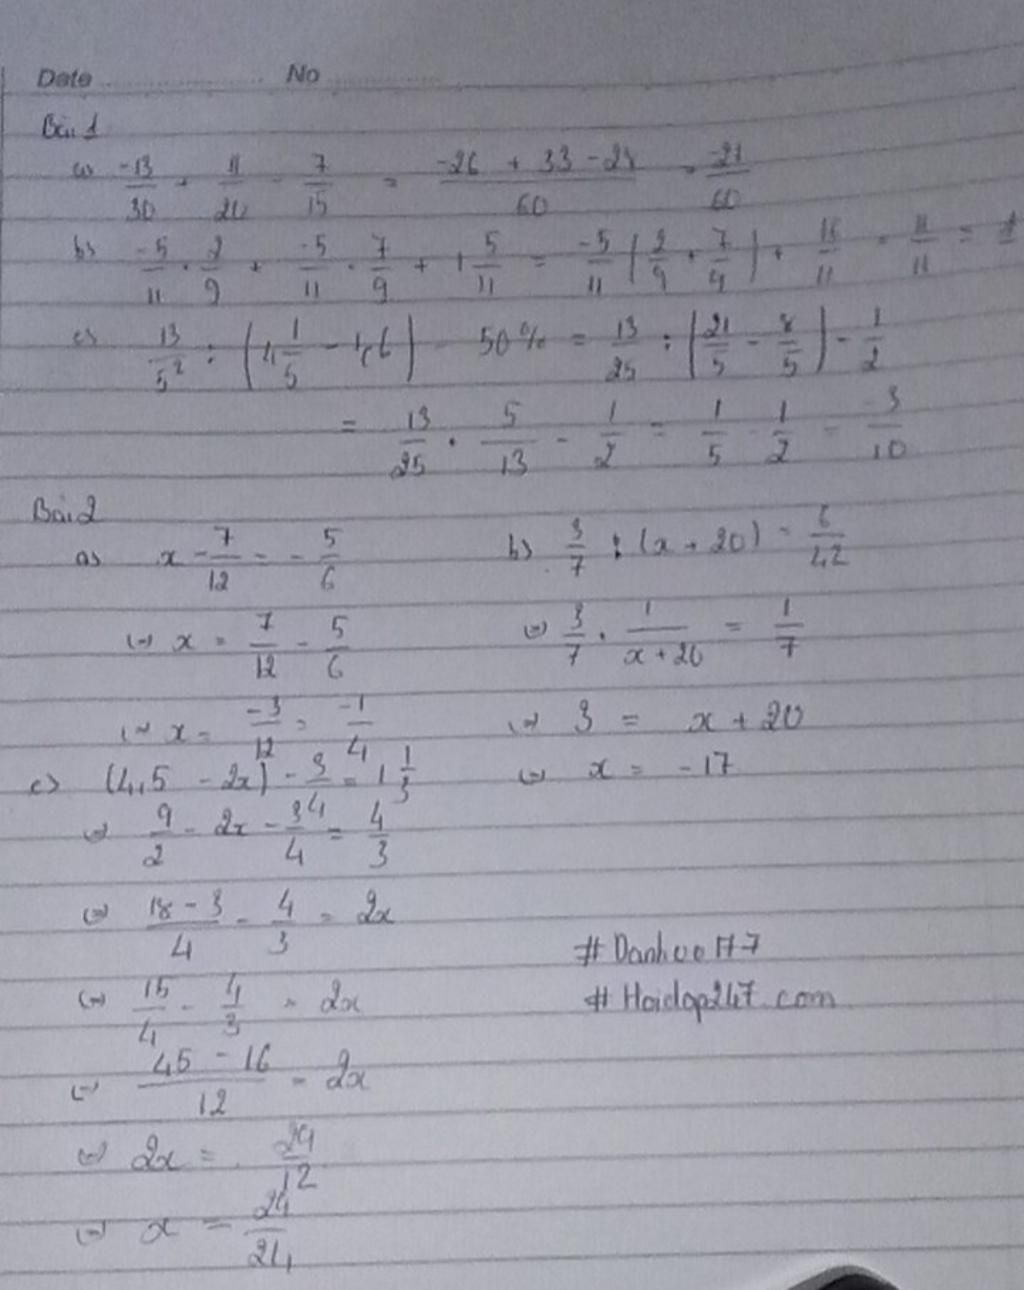 Date No
Bài 1
a) -13/30 + 11/20 - 7/15 = (-26 + 33 - 28)/60 = -21/60
b) -5/11 . 2/9 + -5/11 . 7/9 + 1 5/11 = -5/11 (2/9 + 7/9) + 16/11 = 11/11 = 1
c) 13/5² : (4 1/5 - 1,6) - 50% = 13/25 : (21/5 - 8/5) - 1/2
= 13/25 . 5/13 - 1/2 = 1/5 - 1/2 = -3/10
Bài 2
a) x - 7/12 = - 5/6
(=) x = 7/12 - 5/6
(=) x = -3/12 = -1/4
b) 3/7 : (x + 20) = 6/42
(=) 3/7 . 1/(x + 20) = 1/7
(=) 3 = x + 20
(=) x = -17
c) (4,5 - 2x) - 3/4 = 1 1/3
(=) 9/2 - 2x - 3/4 = 4/3
(=) (18 - 3)/4 - 4/3 = 2x
(=) 15/4 - 4/3 = 2x
(=) (45 - 16)/12 = 2x
(=) 2x = 29/12
(=) x = 29/24
# Danhvo177
# Hoidap247.com